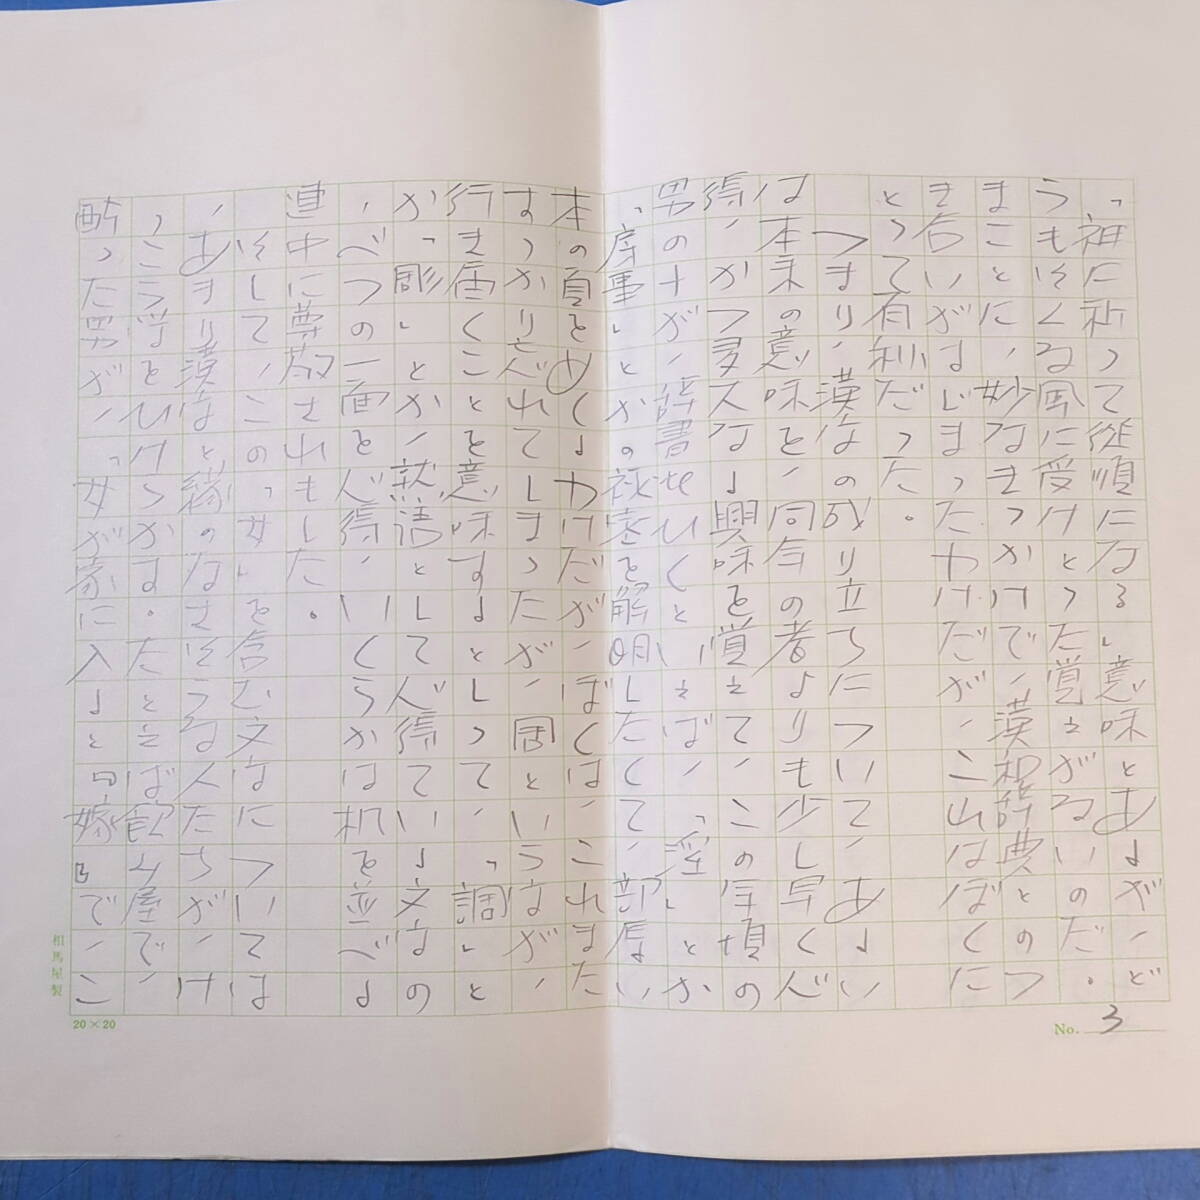 「祖に祈って従順になる」意味とあるが、ど
うもそんな風に受けとった覚えがないのだ。
まことに、妙なきっかけで、漢和辞典とのつ
き合いがはじまったわけだが、これはぼくに
とって有利だった。
つまり、漢字の成り立ちについて、あるい
は本来の意味を、同年の者よりも少し早く心
得、かつ多大なる興味を覚えて、この年頃の
男の子が、辞書をひくといえば、「淫」とか
「房事」とかの秘密を解明したくて、部厚い
本の頁をめくるわけだが、ぼくは、これまた
すっかり忘れてしまったが、周という字が、
行き届くことを意味するとしって、「調」と
か「彫」とか、熟語として心得ている文字の
、べつの一面を心得、いくらかは机を並べる
連中に尊敬されもした。
そして、この「女」を含む文字については
、あまり漢字と縁のなさそうな人たちが、け
っこう学をひけらかす。たとえば飲み屋で、
酔った男が、「女が家に入ると『嫁』で、こ
相馬屋製
20×20
No. 3